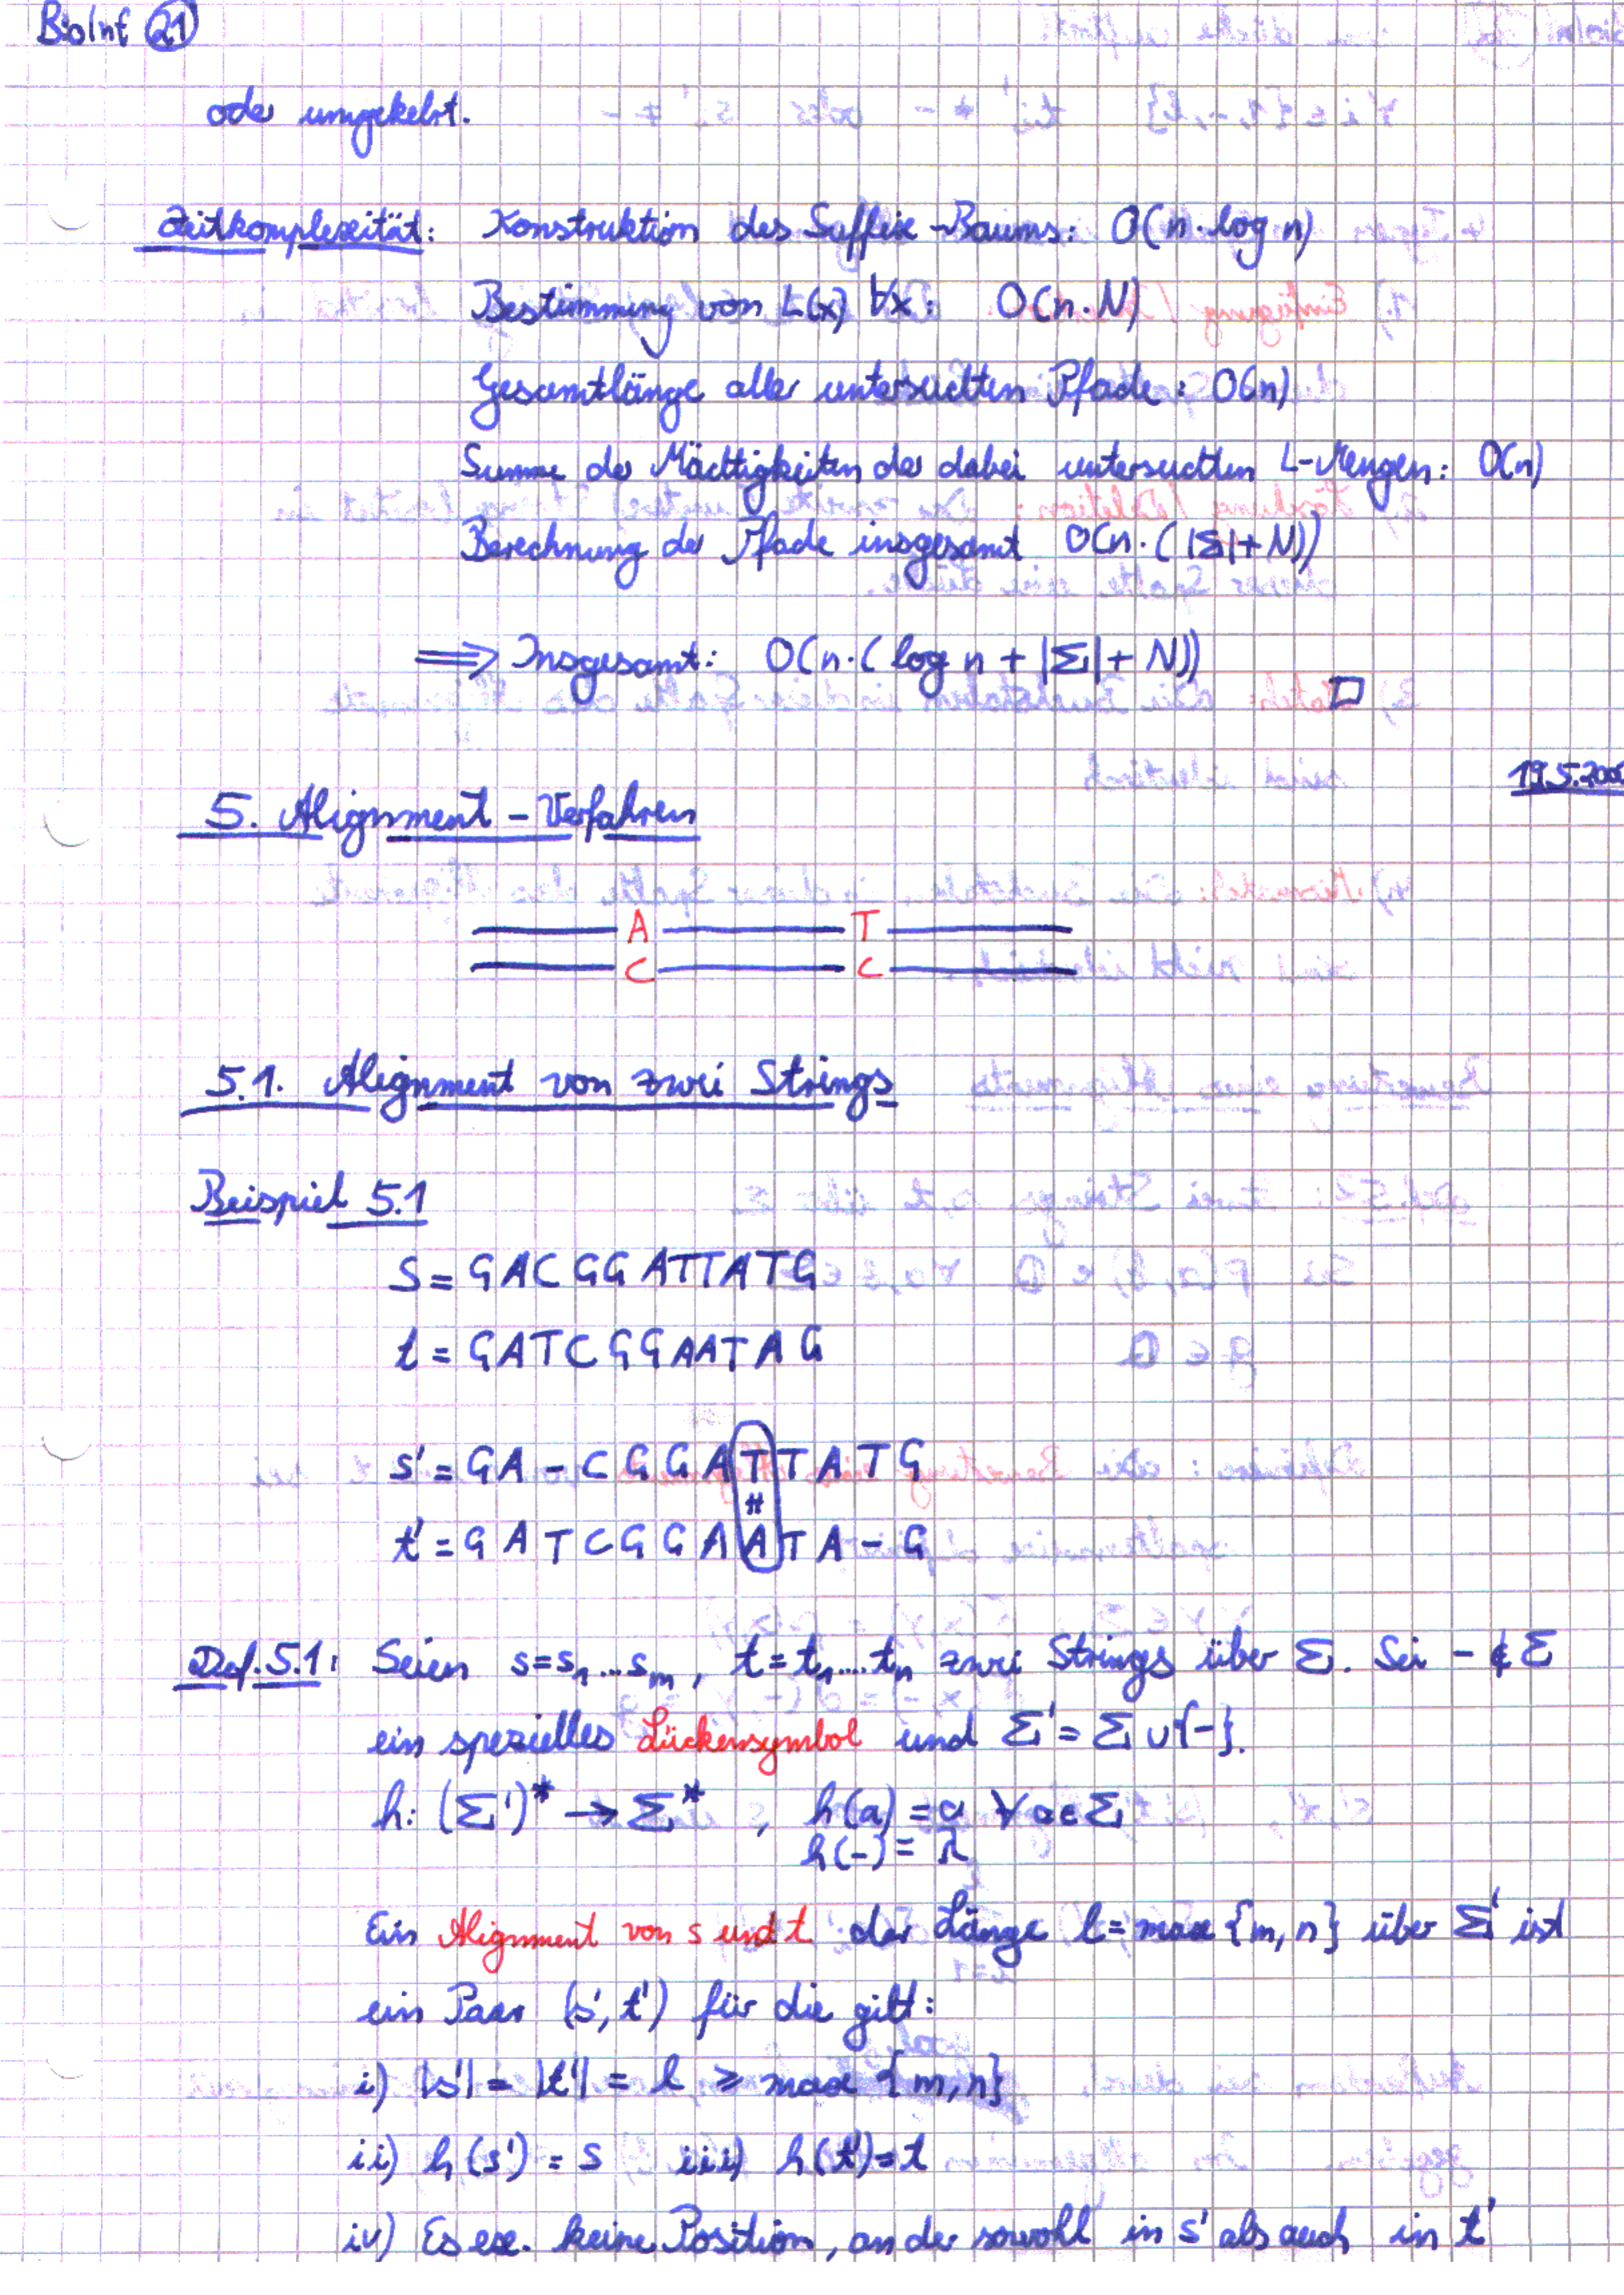 BioInf 21
oder umgekehrt.
Zeitkomplexität: Konstruktion des Suffix-Baums: O(n·log n)
Bestimmung von L(x) ∀x: O(n·N)
Gesamtlänge aller untersuchten Pfade: O(n)
Summe der Mächtigkeiten der dabei untersuchten L-Mengen: O(n)
Berechnung der Pfade insgesamt O(n·(|Σ|+N))
⟹ Insgesamt: O(n·(log n + |Σ| + N))
□
19.5.200
5. Alignment-Verfahren
A T
C C
5.1. Alignment von zwei Strings
Beispiel 5.1
s = GACGGATTATG
t = GATCGGAATAG
s' = GA-CGGATTATG
#
t' = GATCGGAATA-G
Def. 5.1: Seien s=s₁...sₘ, t=t₁....tₙ zwei Strings über Σ. Sei - ∉ Σ
ein spezielles Lückensymbol und Σ' = Σ ∪ {-}.
h: (Σ')* → Σ*, h(a) = a ∀a∈Σ
h(-) = λ
Ein Alignment von s und t der Länge l = max {m,n} über Σ' ist
ein Paar (s', t') für die gilt:
i) |s'| = |t'| = l ≥ max {m,n}
ii) h(s') = s iii) h(t') = t
iv) Es ex. keine Position, an der sowohl in s' als auch in t'